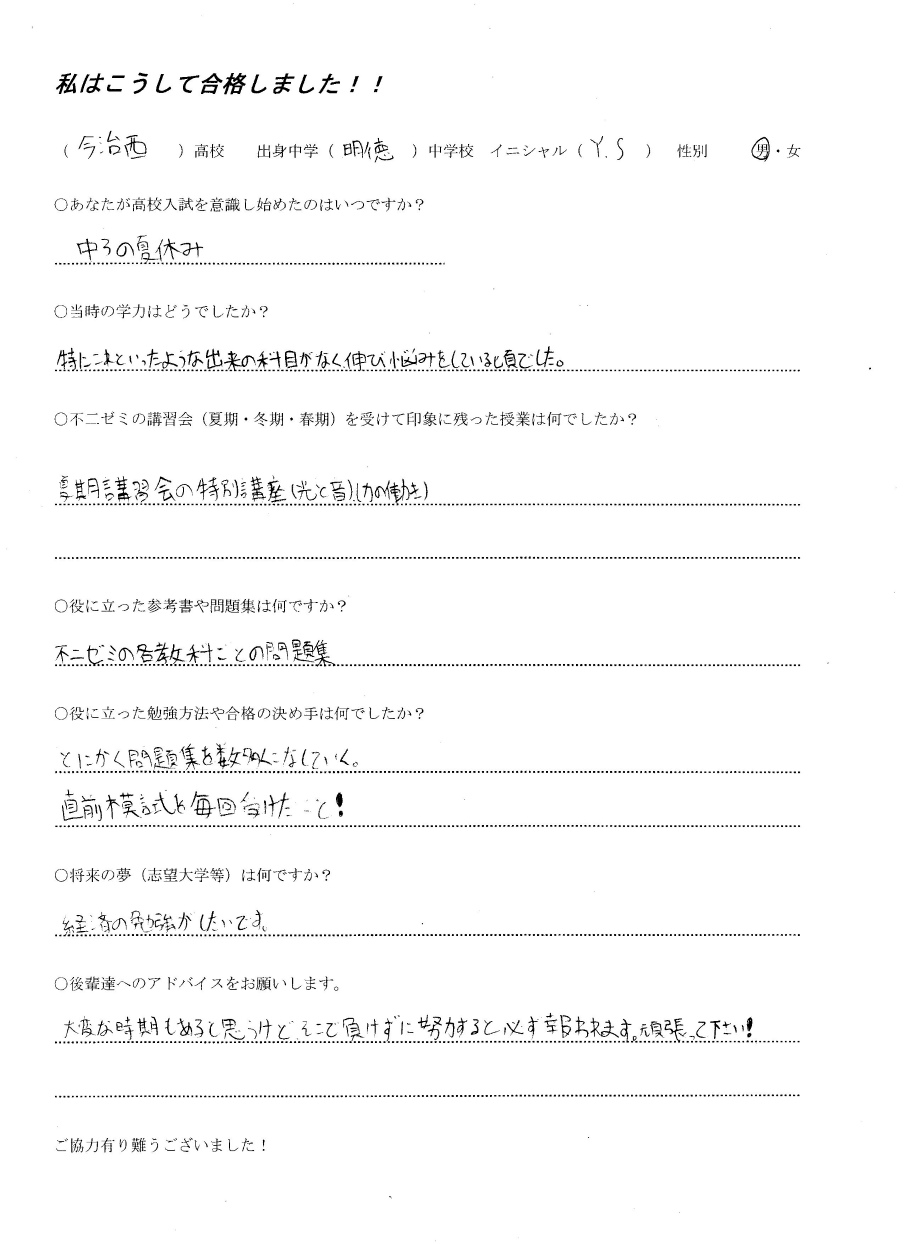 私はこうして合格しました！！
（ 今治西 ）高校　出身中学（ 明徳 ）中学校　イニシャル（ Y.S ）　性別　男・女
○あなたが高校入試を意識し始めたのはいつですか？
中3の夏休み
○当時の学力はどうでしたか？
特にこれといったような出来の科目がなく、伸び悩みをしている頃でした。
○不二ゼミの講習会（夏期・冬期・春期）を受けて印象に残った授業は何でしたか？
夏期講習会の特別講座(光と音)、(力の働き)
○役に立った参考書や問題集は何ですか？
不二ゼミの各教科ごとの問題集
○役に立った勉強方法や合格の決め手は何でしたか？
とにかく問題集を数多くこなしていく。
直前模試を毎回受けたこと！
○将来の夢（志望大学等）は何ですか？
経済の勉強がしたいです。
○後輩達へのアドバイスをお願いします。
大変な時期もあると思うけど、そこで負けずに努力すると必ず報われます。頑張って下さい！
ご協力有り難うございました！